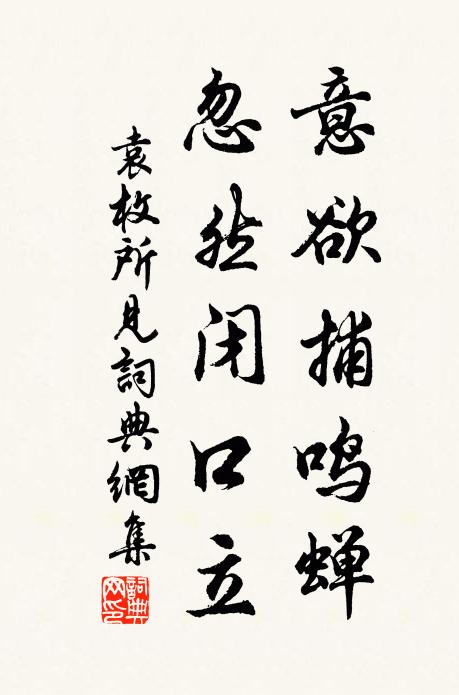 意欲捕鸣蝉
忽然闭口立
袁枚所见詞典網集
詞典網印